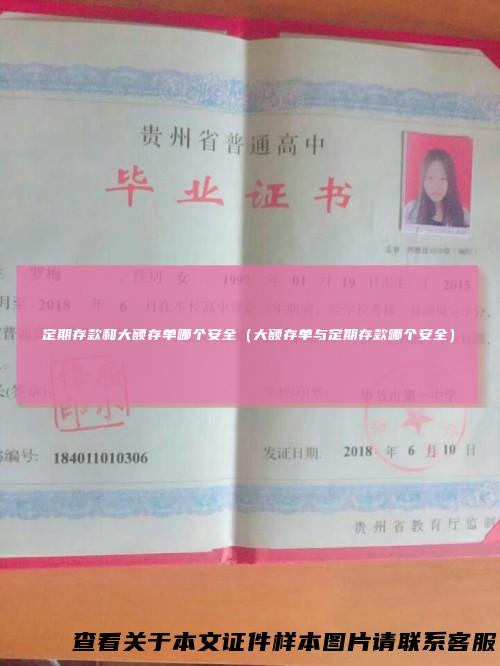 贵州省普通高中
毕业证书
罗梅 ，性别 女 ，1997 年 01 月 19 日出生 于 2015
月至 2018 年 6 月在本校高中
定期存款和大额存单哪个安全（大额存单与定期存款哪个安全）
学校(印章) 毕节市第一中学
编号: 184011010306
发证日期: 2018 年 6 月 10 日
贵州省教育厅监制
查看关于本文证件样本图片请联系客服